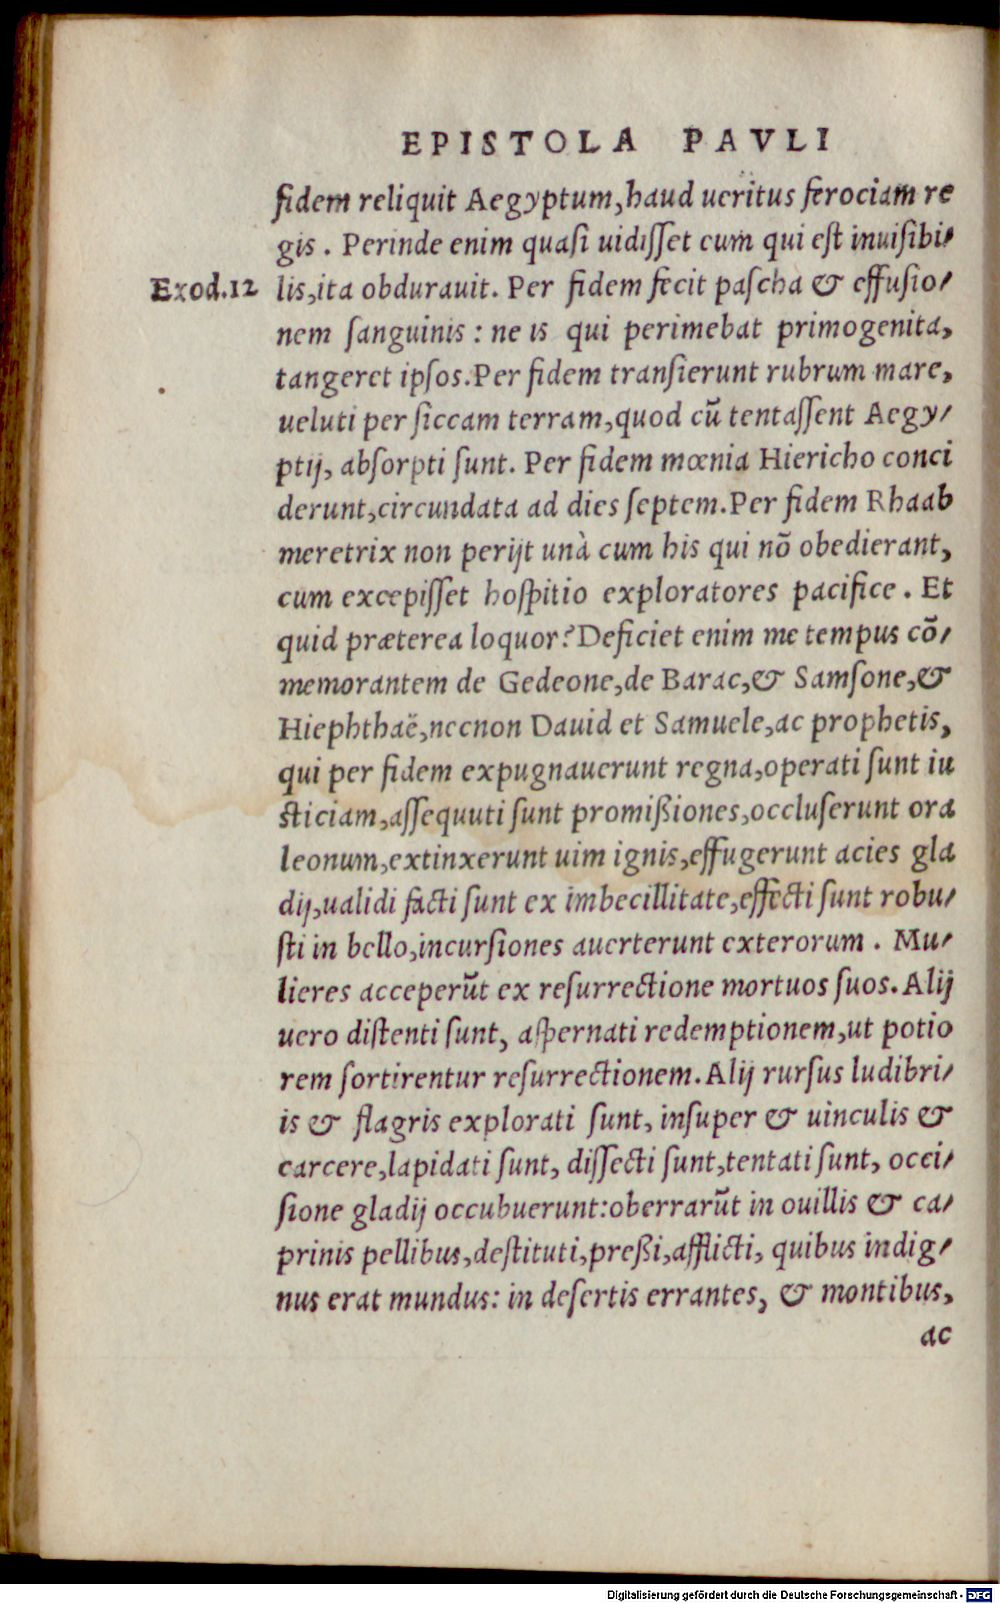 EPISTOLA PAVLI
fidem reliquit Aegyptum, haud ueritus ferociam re
gis. Perinde enim quasi uidisset eum qui est inuisibi-
Exod.12 lis, ita obdurauit. Per fidem fecit pascha & effusio-
nem sanguinis: ne is qui perimebat primogenita,
tangeret ipsos. Per fidem transierunt rubrum mare,
ueluti per siccam terram, quod cū tentassent Aegy-
ptij, absorpti sunt. Per fidem mœnia Hiericho conci
derunt, circundata ad dies septem. Per fidem Rhaab
meretrix non perijt unà cum his qui nō obedierant,
cum excepisset hospitio exploratores pacifice. Et
quid præterea loquor? Deficiet enim me tempus cō-
memorantem de Gedeone, de Barac, & Samsone, &
Hiephthaë, necnon Dauid et Samuele, ac prophetis,
qui per fidem expugnauerunt regna, operati sunt iu
sticiam, assequuti sunt promißiones, occluserunt ora
leonum, extinxerunt uim ignis, effugerunt acies gla
dij, ualidi facti sunt ex imbecillitate, effecti sunt robu-
sti in bello, incursiones auerterunt exterorum. Mu-
lieres acceperūt ex resurrectione mortuos suos. Alij
uero distenti sunt, aspernati redemptionem, ut potio
rem sortirentur resurrectionem. Alij rursus ludibri-
is & flagris explorati sunt, insuper & uinculis &
carcere, lapidati sunt, dissecti sunt, tentati sunt, occi-
sione gladij occubuerunt: oberrarūt in ouillis & ca-
prinis pellibus, destituti, preßi, afflicti, quibus indig-
nus erat mundus: in desertis errantes, & montibus,
ac
Digitalisierung gefördert durch die Deutsche Forschungsgemeinschaft - DFG